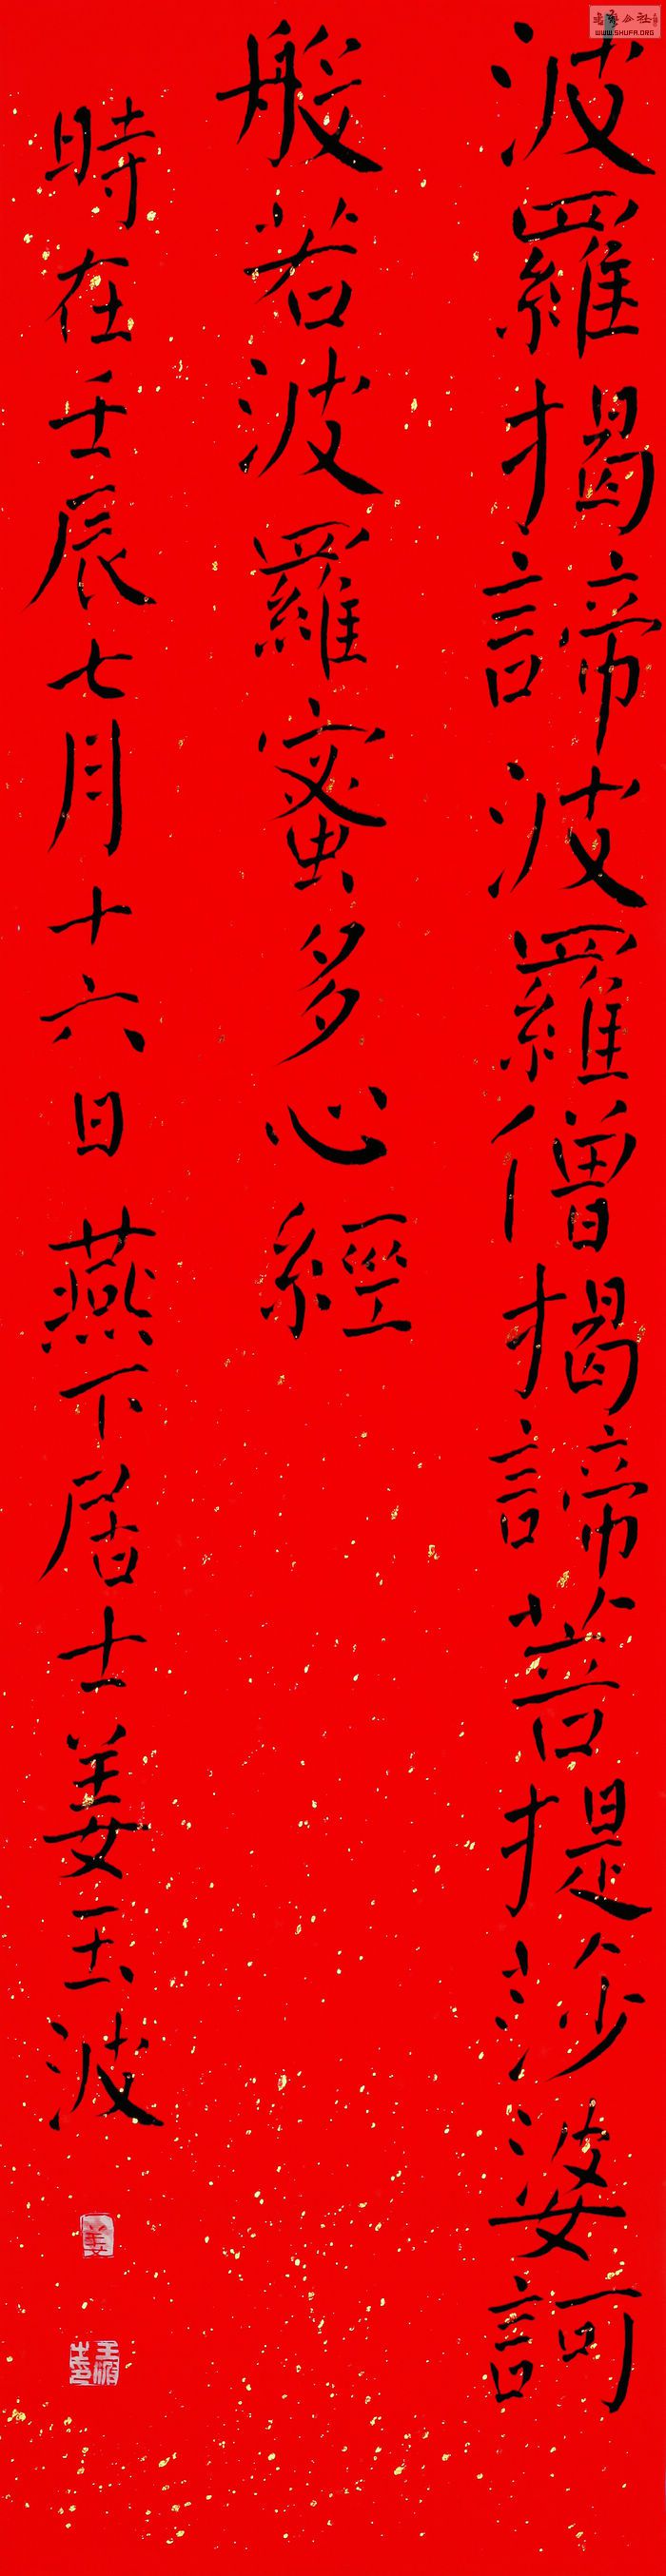 波羅揭諦波羅僧揭諦菩提莎婆訶
般若波羅蜜多心經
時在壬辰七月十六日燕下居士姜玉波
姜
書法公社
WWW.SHUFA.ORG